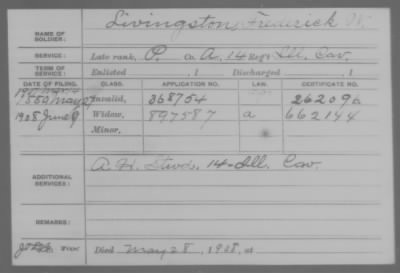 NAME OF SOLDIER: Livingston, Frederick W.
SERVICE: Late rank, P. Co. A, 14 Reg't Ill. Cav.
TERM OF SERVICE: Enlisted , 1 Discharged , 1
DATE OF FILING. CLASS. APPLICATION NO. LAW. CERTIFICATE NO.
Invalid, 368754 262096
1908 June 9 Widow, 897587 a 662144
Minor,
ADDITIONAL SERVICES: A. H. Stwd. 14 Ill. Cav.
REMARKS:
Died May 28, 1908, at